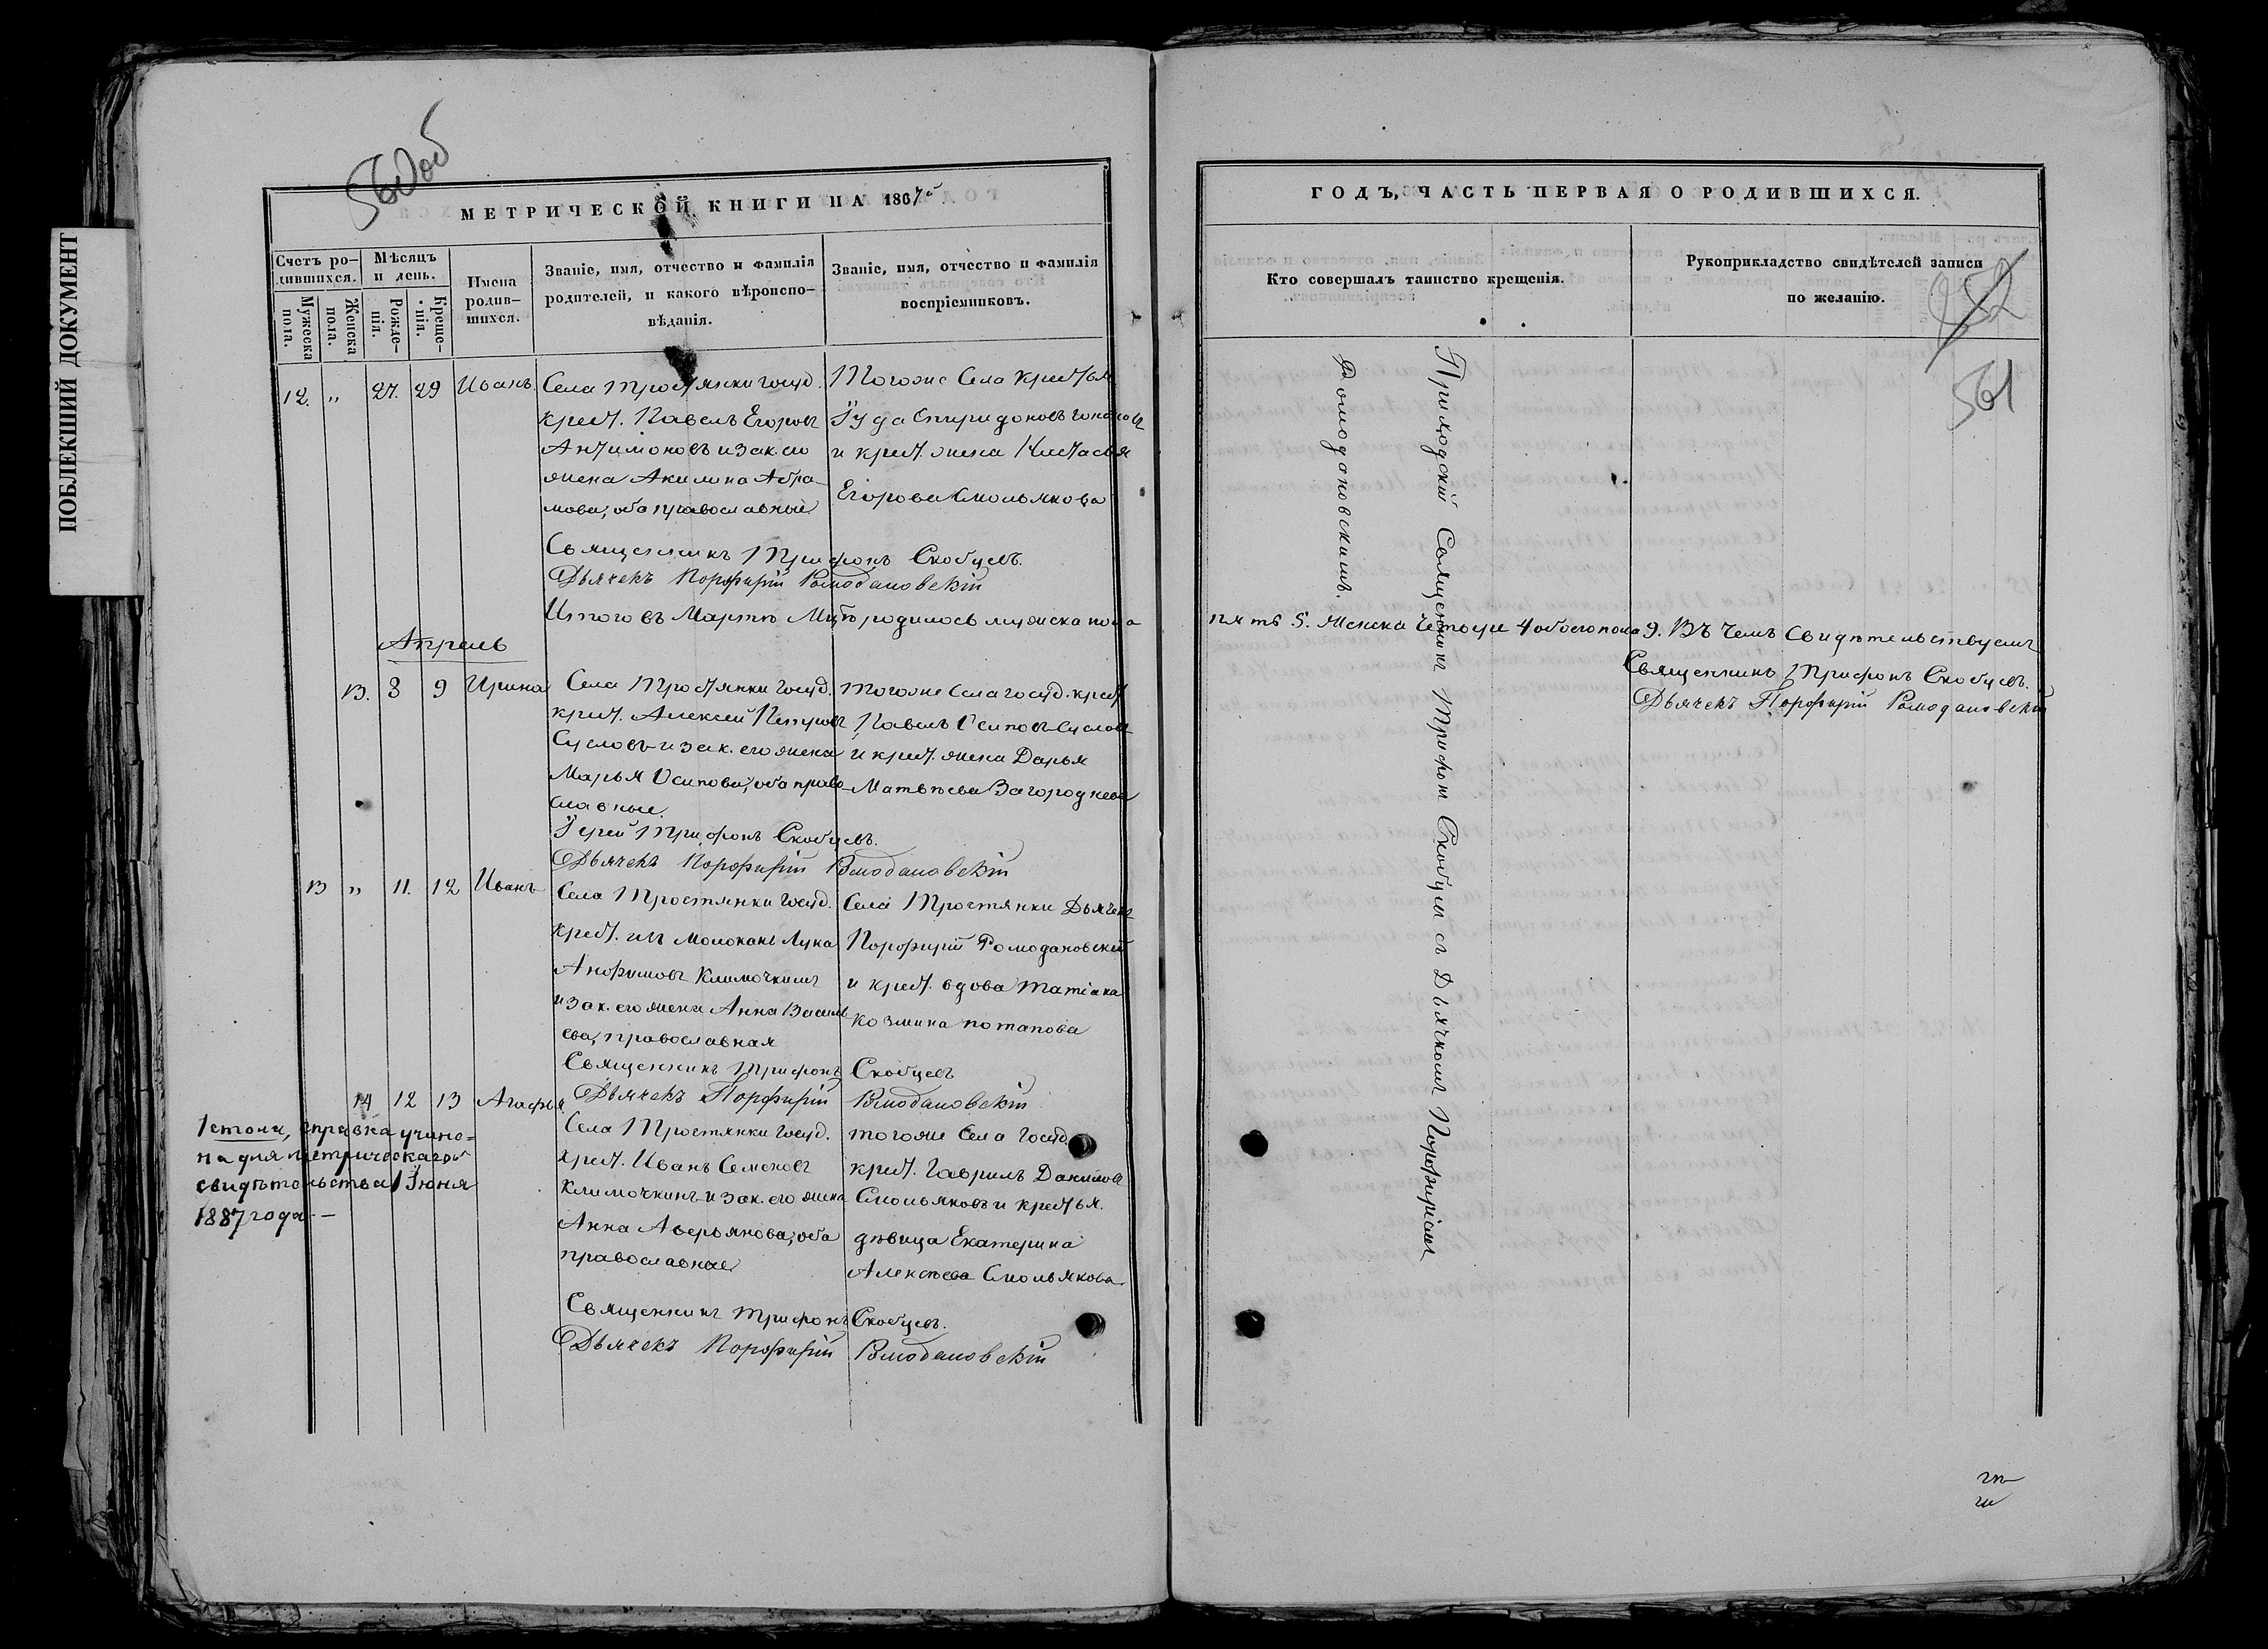 ПОБЛЕКШИЙ ДОКУМЕНТ
560об
МЕТРИЧЕСКОЙ КНИГИ НА 1867й
Счетъ родившихся.
Мѣсяцъ и день.
Мужеска пола.
Женска пола.
Рожде-нія.
Креще-нія.
Имена родив-шихся.
Званіе, имя, отчество и фамилія
родителей, и какого вѣроиспо-
вѣданія.
Званіе, имя, отчество и фамилія
воспріемниковъ.
12. „ 27. 29 Иванъ.
Села Тростянки госуд.
крест. Павелъ Егоровъ
Антимоновъ и зак. его
жена Акилина Абра-
мова, оба православные
Тогоже Села крестья.
Іуда Спиридоновъ
и крест. жена Настасья
Егорова Смольякова
Священникъ Трифонъ Скобцевъ.
Дьячекъ Порфирій Ромодановскій
Итого въ Мартѣ Мцѣ родилось мужеска пола
Апрель
13. 8 9 Ирина
Села Тростянки госуд.
крест. Алексей Петровъ
Сусловъ и зак. его жена
Марья Осипова, оба право-
славные.
тогоже Села госуд. крест.
Павелъ Осиповъ Сусловъ
и крест. жена Дарья
Матвѣева Загороднева
Іерей Трифонъ Скобцевъ.
Дьячекъ Порфирій Ромодановскій
13 „ 11. 12 Иванъ
Села Тростянки госуд.
крест. изъ молоканъ Лука
Анфимовъ Климочкинъ
и зак. его жена Анна Василь
ева, православная
Села Тростянки Дьячекъ
Порфирій Ромодановскій
и крест. вдова Татіана
Козмина Потапова
Священникъ Трифонъ Скобцевъ
Дьячекъ Порфирій Ромодановскій
14 12 13 Агафья
Села Тростянки госуд.
крест. Иванъ Семеновъ
Климочкинъ и зак. его жена
Анна Аверьянова, оба
православные
тогоже Села госуд.
крест. Гаврилъ Даниловъ
Смольяковъ и крестья.
дѣвица Екатерина
Алексѣева Смольякова
Священникъ Трифонъ Скобцевъ.
Дьячекъ Порфирій Ромодановскій
1 столъ, справка учине-
на для метрическаго
свидѣтельства 1 Іюня
1887 года. —
ГОДЪ, ЧАСТЬ ПЕРВАЯ О РОДИВШИХСЯ.
Кто совершалъ таинство крещенія.
Рукоприкладство свидѣтелей записи
по желанію.
252
561
Приходскій Священникъ Трифонъ Скобцевъ съ Дьячкомъ Порфиріемъ
Ромодановскимъ.
пять 5. Женска Четыре 4 обоего пола 9. Въ чемъ Свидѣтельствуемъ
Священникъ Трифонъ Скобцевъ.
Дьячекъ Порфирій Ромодановскій